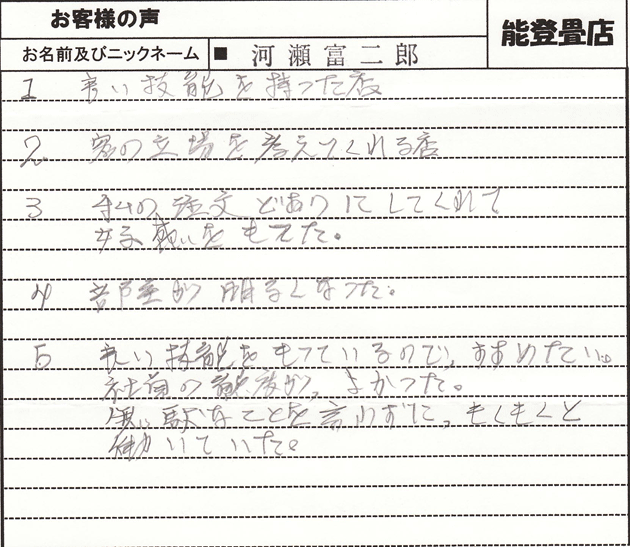 お客様の声
能登畳店
お名前及びニックネーム ■ 河瀬富二郎
1 良い技能を持った店
2 客の立場を考えてくれる店
3 私の注文どおりにしてくれて
好感をもてた。
4 部屋が明るくなった。
5 良い技能をもっているので、すすめたい。
社員の態度が、よかった。
無駄なことを言わずに、もくもくと
働いていた。